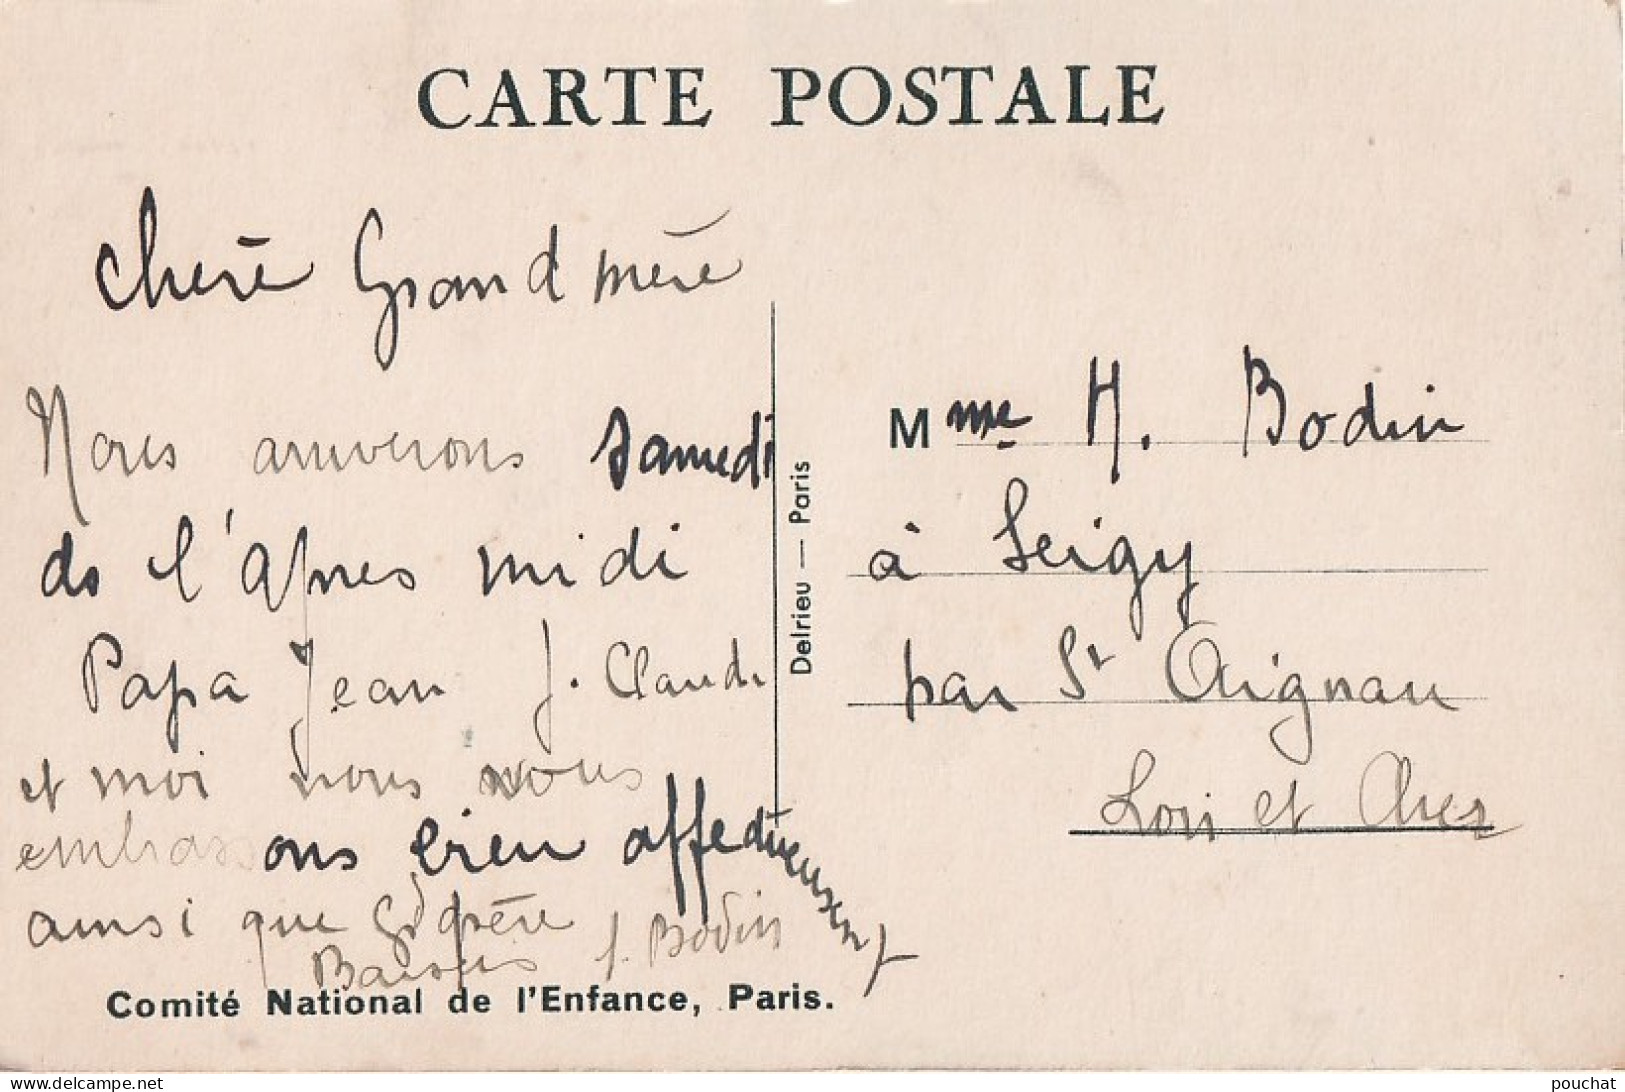 CARTE POSTALE
Chère Grand mère
Nous arriverons samedi
ds l'après midi
Papa Jean J. Claude
et moi nous vous
embrassons bien affectueusement
ainsi que Gd père
Baisers J. Bodin
Comité National de l'Enfance, Paris.
Delrieu — Paris
Mme H. Bodin
à Seigy
par St Aignan
Loir et Cher
pouchat